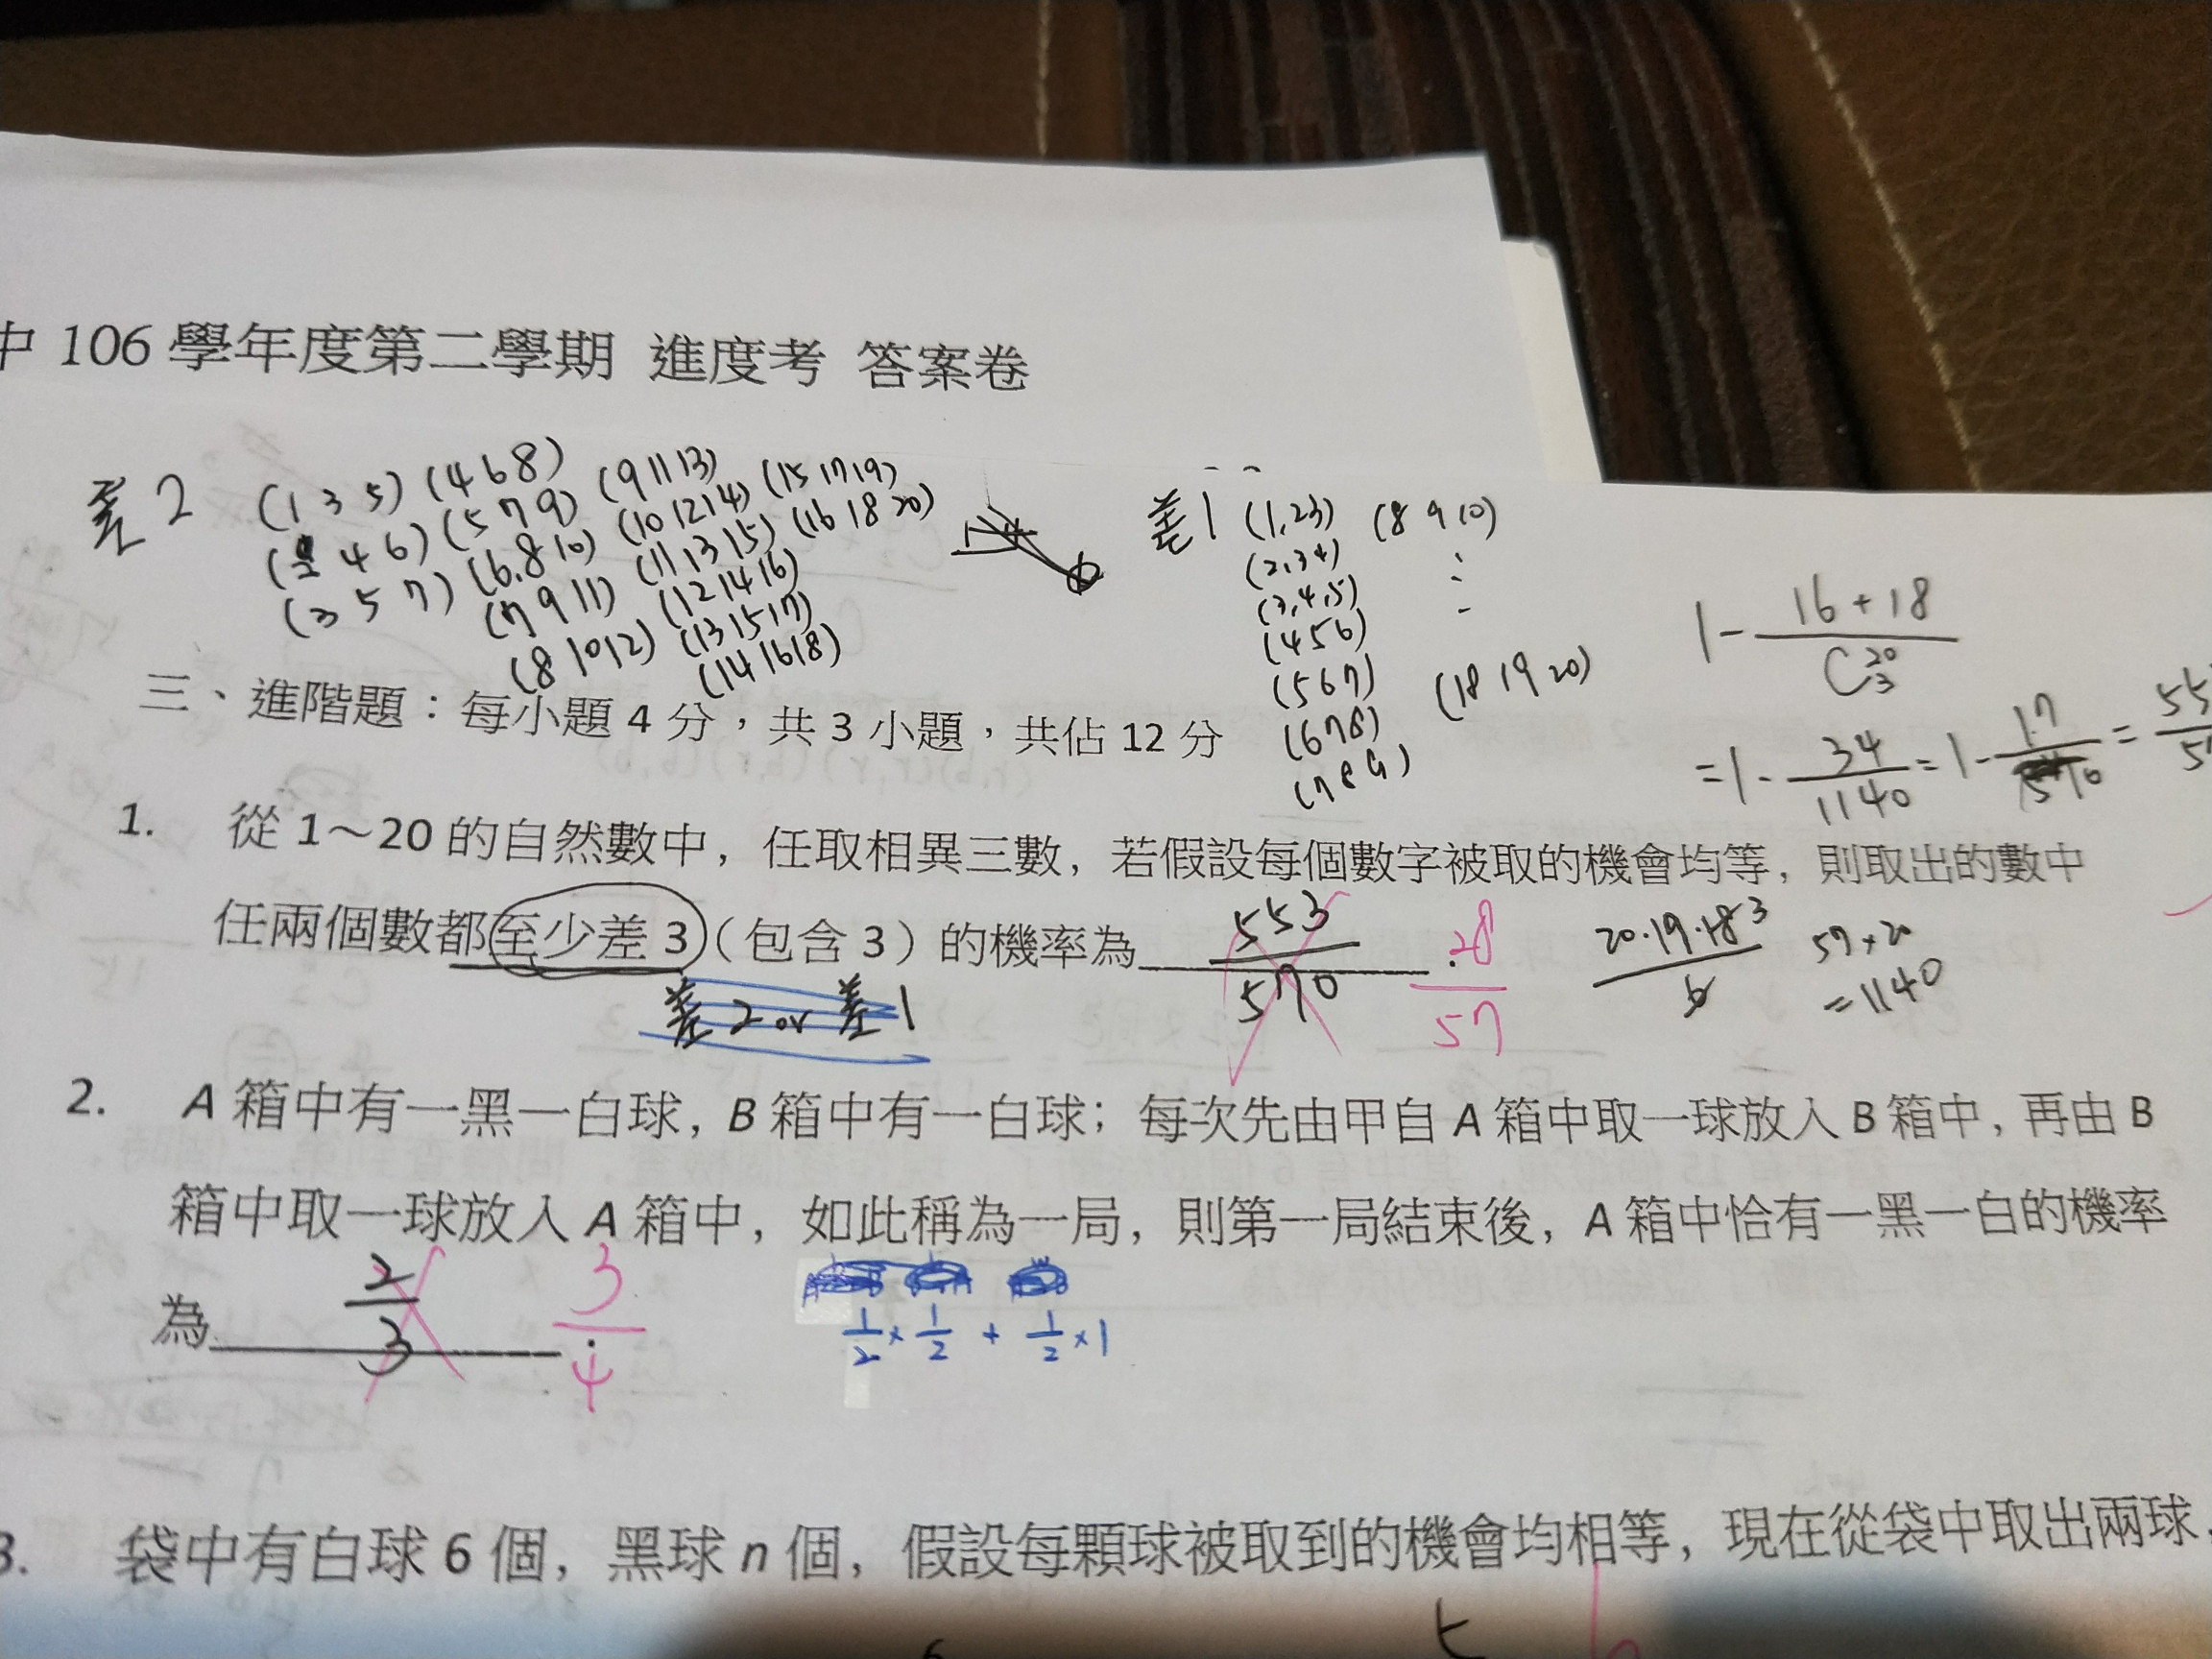 中 106 學年度第二學期 進度考 答案卷
差2 (1 3 5) (4 6 8) (9 11 13) (15 17 19)
(2 4 6) (5 7 9) (10 12 14) (16 18 20)
(3 5 7) (6.8 10) (11 13 15)
(7 9 11) (12 14 16)
(8 10 12) (13 15 17)
(14 16 18)
差1 (1,2 3) (8 9 10)
(2,3 4)
(3,4,5)
(4 5 6)
(5 6 7) (18 19 20)
(6 7 8)
(7 8 9)
1 - 16+18 / C 20 3
= 1 - 34/1140 = 1 - 17/570 = 55
三、進階題：每小題 4 分，共 3 小題，共佔 12 分
1. 從 1～20 的自然數中，任取相異三數，若假設每個數字被取的機會均等，則取出的數中
任兩個數都至少差 3（包含 3）的機率為 553/570 28/57
20·19·18 3 / 6 57×20
=1140
差2 or 差1
2. A 箱中有一黑一白球，B 箱中有一白球；每次先由甲自 A 箱中取一球放入 B 箱中，再由 B
箱中取一球放入 A 箱中，如此稱為一局，則第一局結束後，A 箱中恰有一黑一白的機率
為 2/3 3/4 1/2 × 1/2 + 1/2 × 1
3. 袋中有白球 6 個，黑球 n 個，假設每顆球被取到的機會均相等，現在從袋中取出兩球，